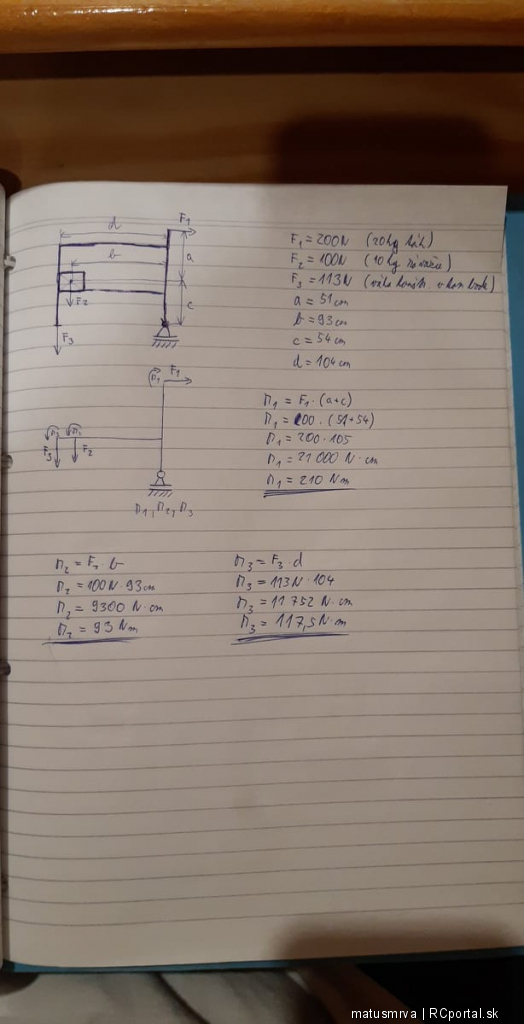 d
F₁
b
a
F₂
c
F₃
F₁ = 200N (20kg
F₂ = 100N (10kg závažie)
F₃ = 113N
a = 51 cm
b = 93 cm
c = 54 cm
d = 104 cm
M₁ F₁
M₃ M₂
F₃ F₂
M₁, M₂, M₃
M₁ = F₁ · (a+c)
M₁ = 200 · (51+54)
M₁ = 200 · 105
M₁ = 21 000 N · cm
M₁ = 210 Nm
M₂ = F₂ b
M₂ = 100N · 93cm
M₂ = 9300 N · cm
M₂ = 93 Nm
M₃ = F₃ · d
M₃ = 113N · 104
M₃ = 11 752 N · cm
M₃ = 117,5 N·m
matusmrva | RCportal.sk